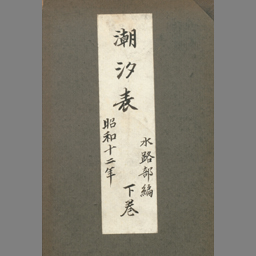 潮汐表
水路部編
下巻
昭和十二年